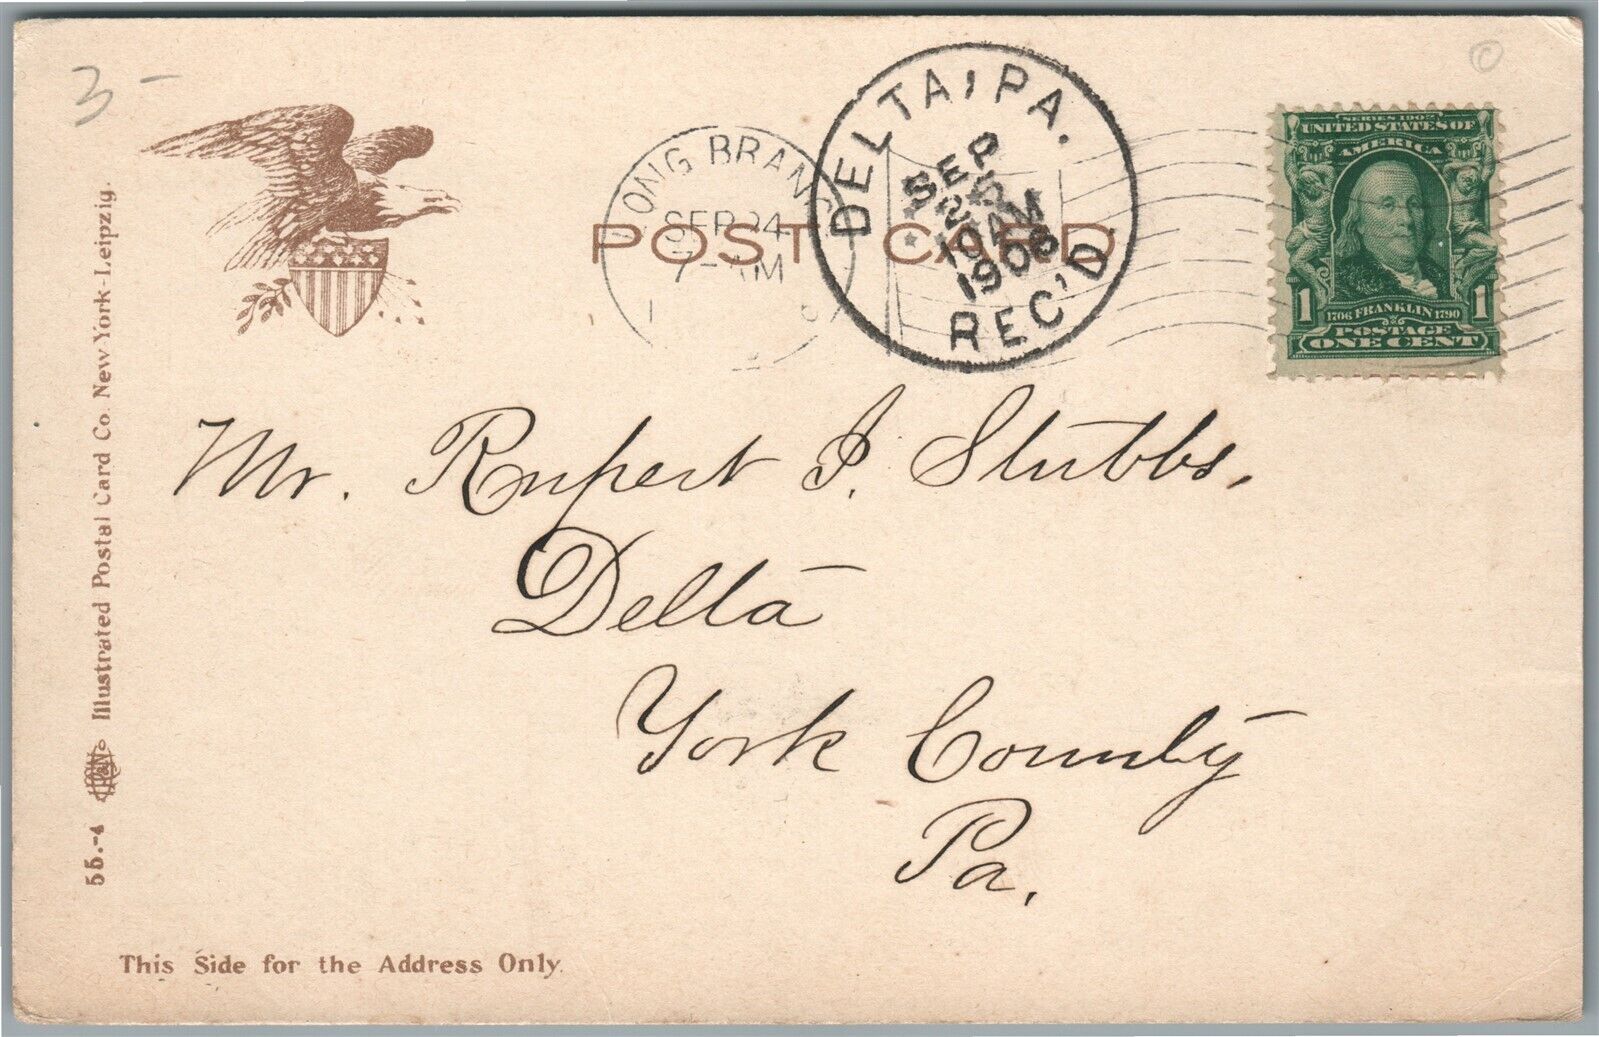 3 -
©
LONG BRANCH
SEP 24
7-AM
DELTA, PA.
SEP
25
10 AM
REC'D.
POST CARD
SERIES 1902
UNITED STATES OF
AMERICA
1 1
1706 FRANKLIN 1790
POSTAGE
ONE CENT
Mr. Rupert J. Stubbs,
Delta
York County
Pa.
55.-4 Illustrated Postal Card Co. New York-Leipzig.
This Side for the Address Only.